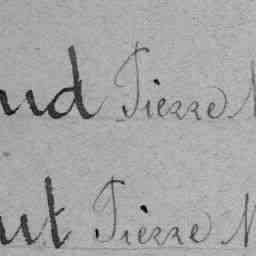 ud Pierre N
ut Pierre N